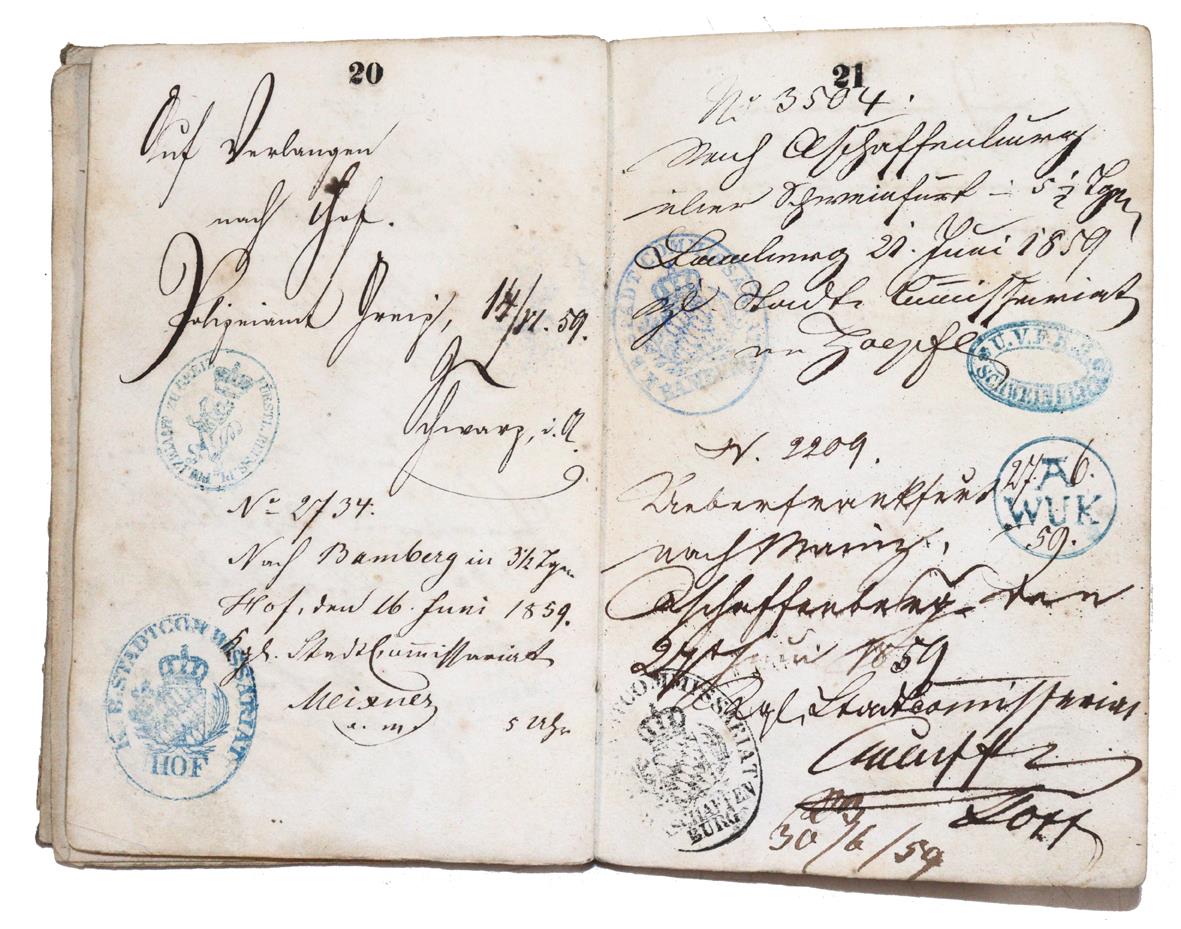 20
Auf Verlangen
nach Hof.
Polizeiamt Greiz, 14/VI. 59.
Schwarz, i. A.
No 2734.
Nach Bamberg in 3½ Tgn
Hof, den 16. Juni 1859.
Kgl. StadtCommissariat
Meixner
5 Uhr
K. B. STADTCOMMISSARIAT
HOF
21
No 3504.
Nach Aschaffenburg
über Schweinfurt in 5½ Tgn
Bamberg 21. Juni 1859
Stadt Commissariat
STADTCOMMISSARIAT
BAMBERG
SCHWEINFURT
N. 2209.
Ueber Frankfurt
nach Mainz,
Aschaffenburg den
27t Juni 1859
Kgl. Stadtcomissariat
A
WUK
27. 6.
59.
COMMISSARIAT
ASCHAFFENBURG
30/6/59